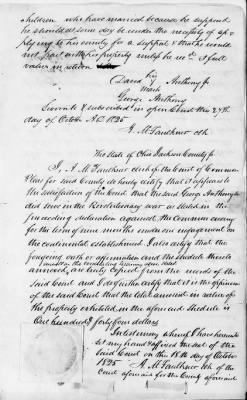 children who have married because he supposed
he should at some day be under the necessity of ap-
plying to his county for a support & that he would
not part with his property until he
his
George Anthony
mark
George Anthony
Sworn to & subscribed in open Court this 24th
day of October A.D. 1825
A. M. Faulkner clk
The State of Ohio Jackson County Ss
I, A. M. Faulkner clerk of the Court of Common
Pleas for said County do hereby certify that it appears to
the satisfaction of the Court that the said George Anthony
did serve in the Revolutionary war as stated in the
preceding declaration against the common enemy
for the term of nine months under an engagement on
the continental established. I also certify that the
foregoing oath or affirmation and the schedule thereto
annexed, are truly copied from the records of the
said Court and I do further certify that it is the opinion
of the said Court that the total amount in value of
the property exhibited in the aforesaid Schedule is
One hundred & forty four dollars
In testimony whereof I have hereunto
set my hand & affixed the seal of the
said Court on the 18th day of October
1825 A. M. Faulkner clk of the
Court aforesaid for the County aforesaid